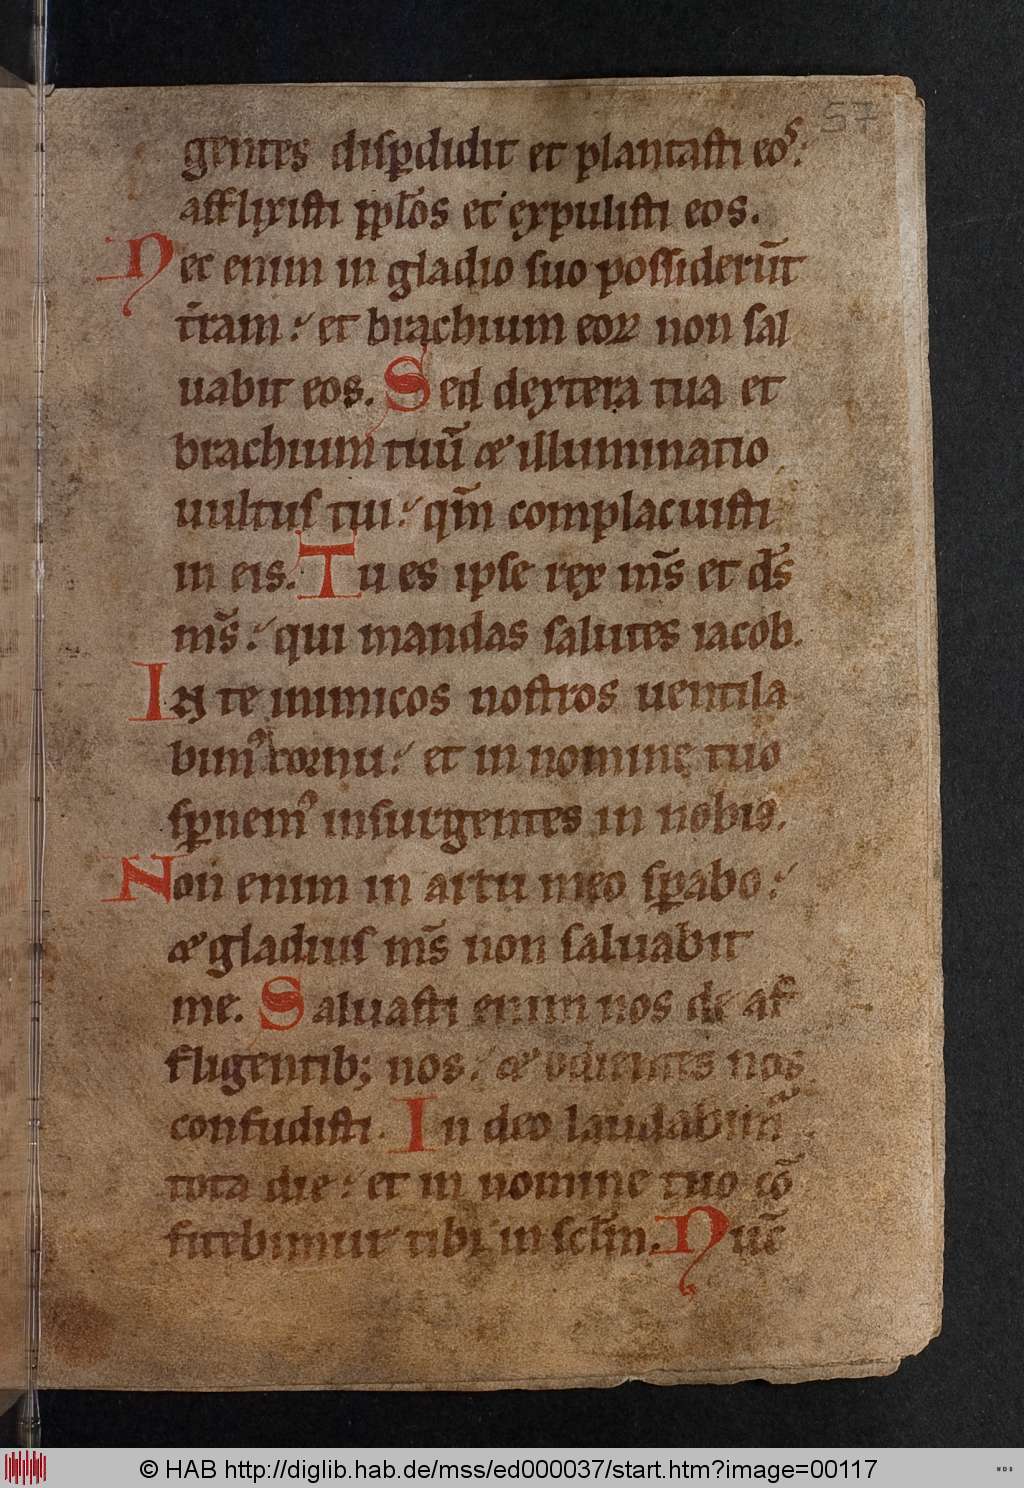 57
gentes disꝑdidit et plantasti eos:
afflixisti ppl̄os et expulisti eos.
Nec enim in gladio suo possiderūt
t̄ram: et brachium eoꝝ non sal
uabit eos. Sed dextera tua et
brachium tuū & illuminatio
uultus tui: qm̄ complacuisti
in eis. Tu es ipse rex m̄s et ds̄
m̄s: qui mandas salutes iacob.
In te inimicos nostros uentila
bimꝰ cornu: et in nomine tuo
sꝑnemꝰ insurgentes in nobis.
Non enim in arcu meo sꝑabo:
& gladius m̄s non saluabit
me. Saluasti enim nos de af
fligentib; nos: & odientes nos
confudisti. In deo laudabimꝰ
tota die: et in nomine tuo cō
fitebimur tibi in scl̄m. Nūc
© HAB http://diglib.hab.de/mss/ed000037/start.htm?image=00117